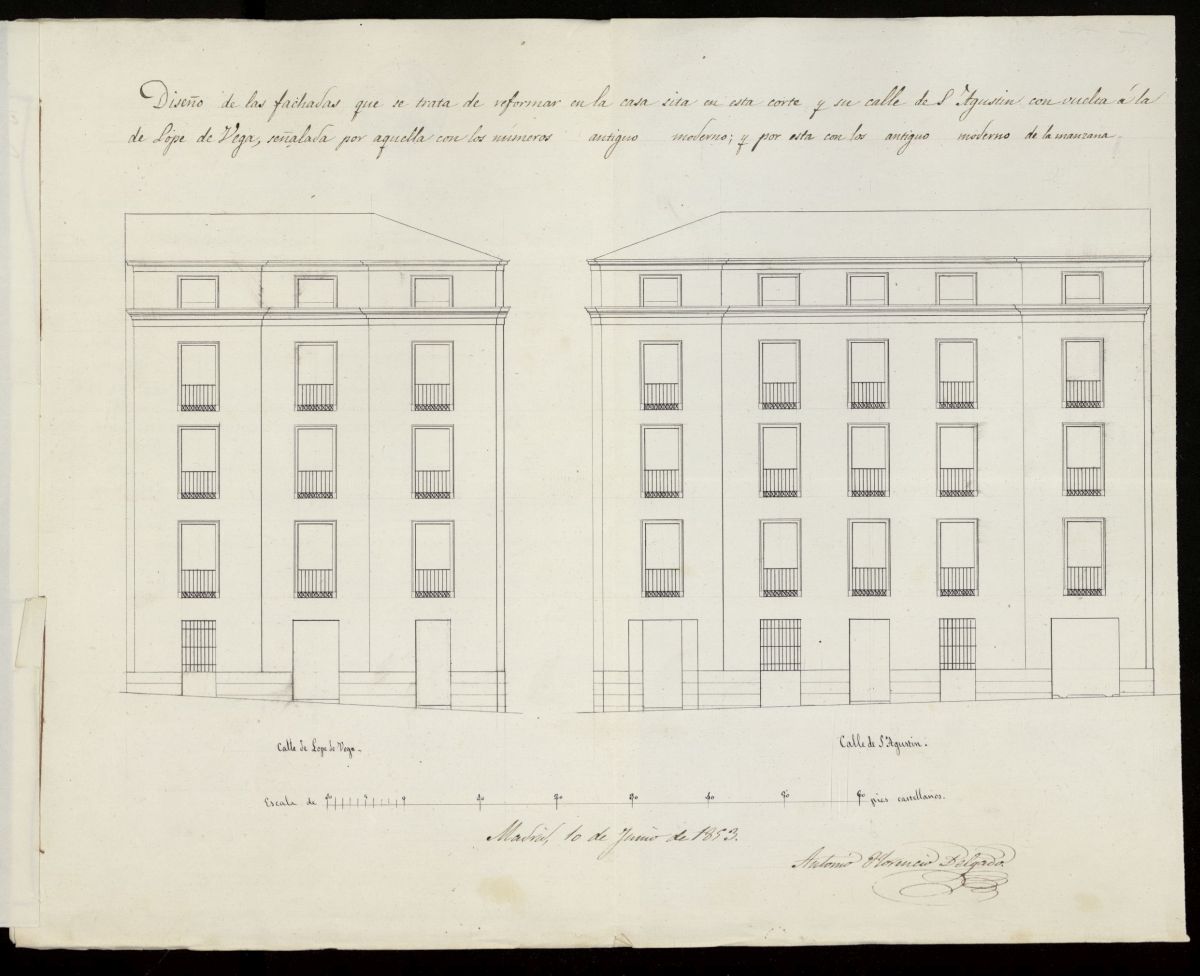 Diseño de las fachadas que se trata de reformar en la casa sita en esta corte y su calle de S. Agustin con vuelta á la
de Lope de Vega, señalada por aquella con los números antiguo moderno; y por esta con los antiguo moderno de la manzana.
Calle de Lope de Vega.
Calle de S. Agustin.
Escala de 10 5 0 10 20 30 40 50 60 pies castellanos.
Madrid, 10 de Junio de 1853.
Antonio Florencio Delgado